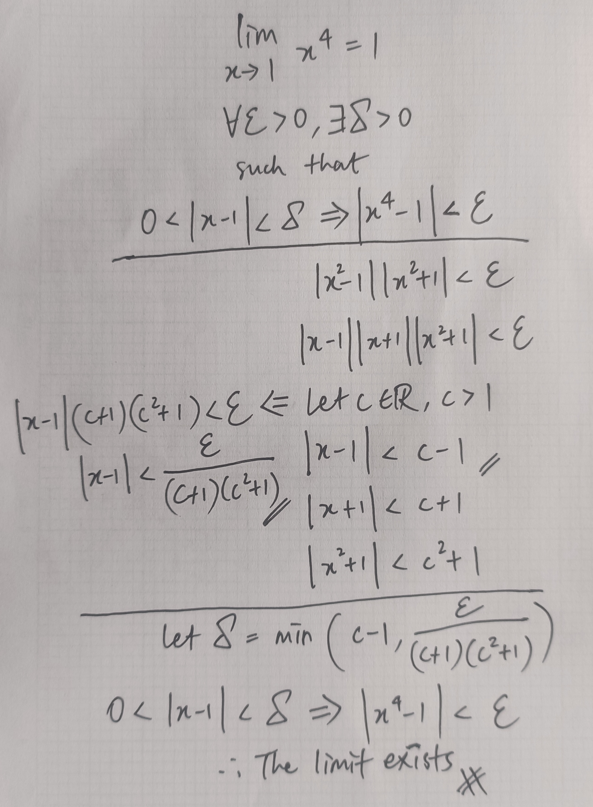 lim x→1 x⁴ = 1
∀ε>0, ∃δ>0
such that
0<|x-1|<δ ⇒ |x⁴-1|<ε
|x²-1||x²+1|<ε
|x-1||x+1||x²+1|<ε
|x-1|(c+1)(c²+1)<ε ⇐ let c∈ℝ, c>1
|x-1| < ε/((c+1)(c²+1)) // |x-1| < c-1 //
|x+1| < c+1
|x²+1| < c²+1
let δ = min (c-1, ε/((c+1)(c²+1)))
0<|x-1|<δ ⇒ |x⁴-1|<ε
∴ The limit exists